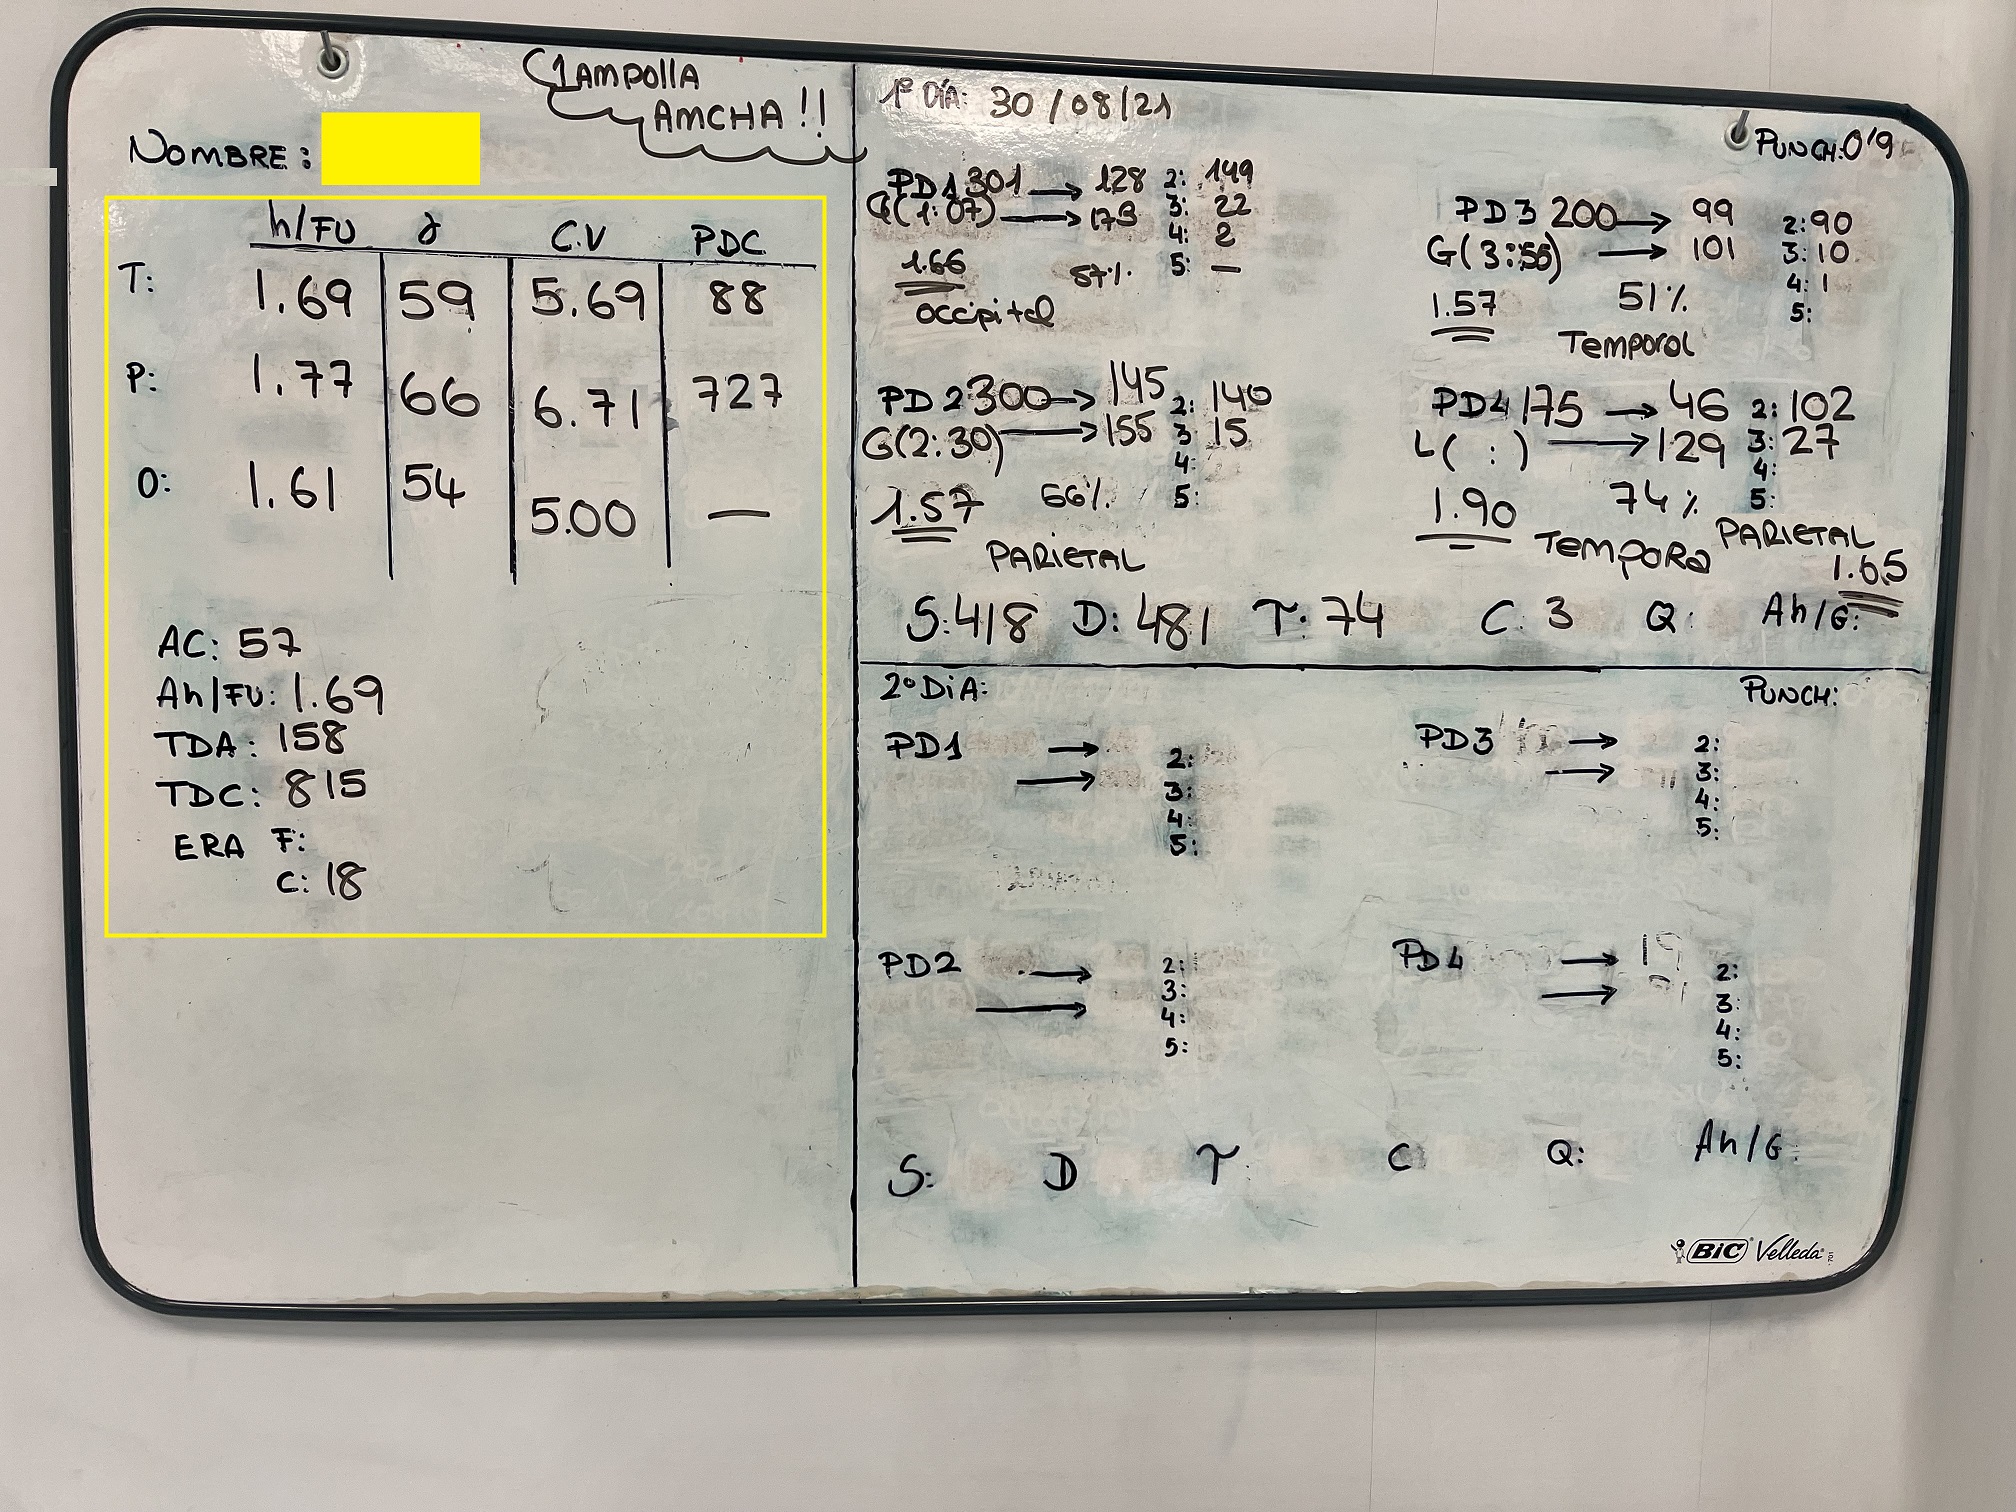 1 AMPOLLA
AMCHA!!
NOMBRE:
h/FU
C.V
PDC
T: 1.69 59 5.69 88
P: 1.77 66 6.71 727
O: 1.61 54 5.00 —
AC: 57
Ah/FU: 1.69
TDA: 158
TDC: 815
ERA F:
C: 18
1º DÍA: 30/08/21
PUNCH: 0'9
PD1 301 → 128 2: 149
G(1:07) → 173 3: 22
4: 2
1.66 57% 5: —
occipital
PD2 300 → 145 2: 140
G(2:30) → 155 3: 15
4:
1.57 5:
PARIETAL
PD3 200 → 99 2: 90
G(3:56) → 101 3: 10
4: 1
1.57 51% 5:
Temporal
PD4 175 → 46 2: 102
L( : ) → 129 3: 27
4:
1.90 74% 5:
Tempora PARIETAL
1.65
S: 418 D: 481 T: 74 C: 3 Q: Ah/G:
2º DIA:
PUNCH:
PD1 → 2:
→ 3:
4:
5:
PD2 → 2:
→ 3:
4:
5:
PD3 → 2:
→ 3:
4:
5:
PD4 → 2:
→ 3:
4:
5:
S: D T C Q: Ah/G:
BIC Velleda